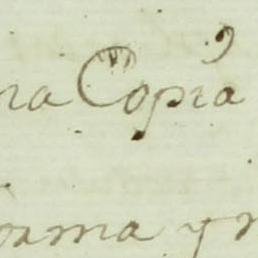 na Copia
orma y